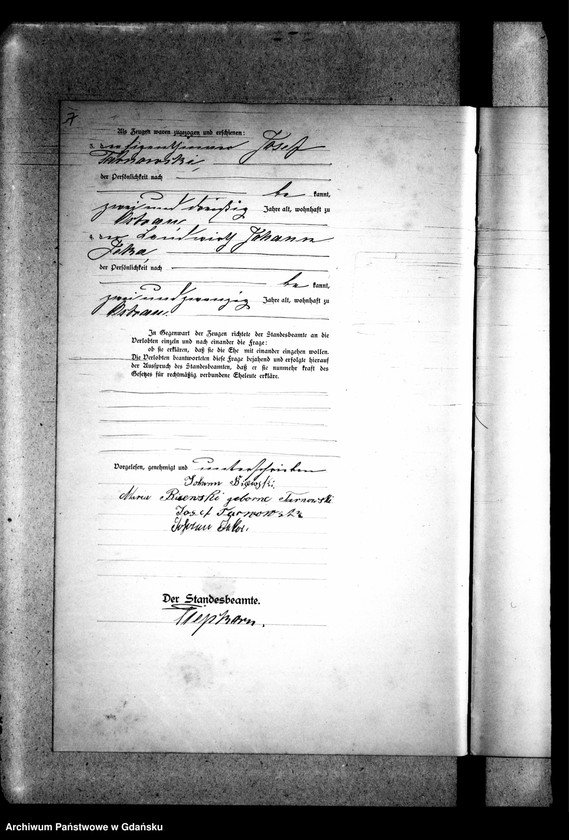 Als Zeugen waren zugezogen und erschienen:
3. der Eigenthümer Josef
Tarnowski,
der Persönlichkeit nach
be kannt,
zwei und dreißig Jahre alt, wohnhaft zu
4. der Landwirth Johann
der Persönlichkeit nach
be kannt,
zwei und zwanzig Jahre alt, wohnhaft zu
In Gegenwart der Zeugen richtete der Standesbeamte an die
Verlobten einzeln und nach einander die Frage:
ob sie erklären, daß sie die Ehe mit einander eingehen wollen.
Die Verlobten beantworteten diese Frage bejahend und erfolgte hierauf
der Ausspruch des Standesbeamten, daß er sie nunmehr kraft des
Gesetzes für rechtmäßig verbundene Eheleute erkläre.
Vorgelesen, genehmigt und unterschrieben
Johann
Maria geborne Tarnowski
Josef Tarnowski
Johann
Der Standesbeamte.
Archiwum Państwowe w Gdańsku